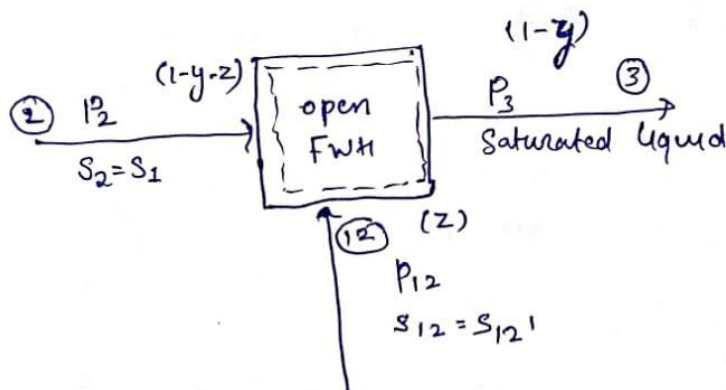 (1-y)
(1-y-z)
② P₂
open
FWH
P₃ ③
Saturated liquid
S₂=S₁
⑫ (z)
P₁₂
S₁₂ = S₁₂'